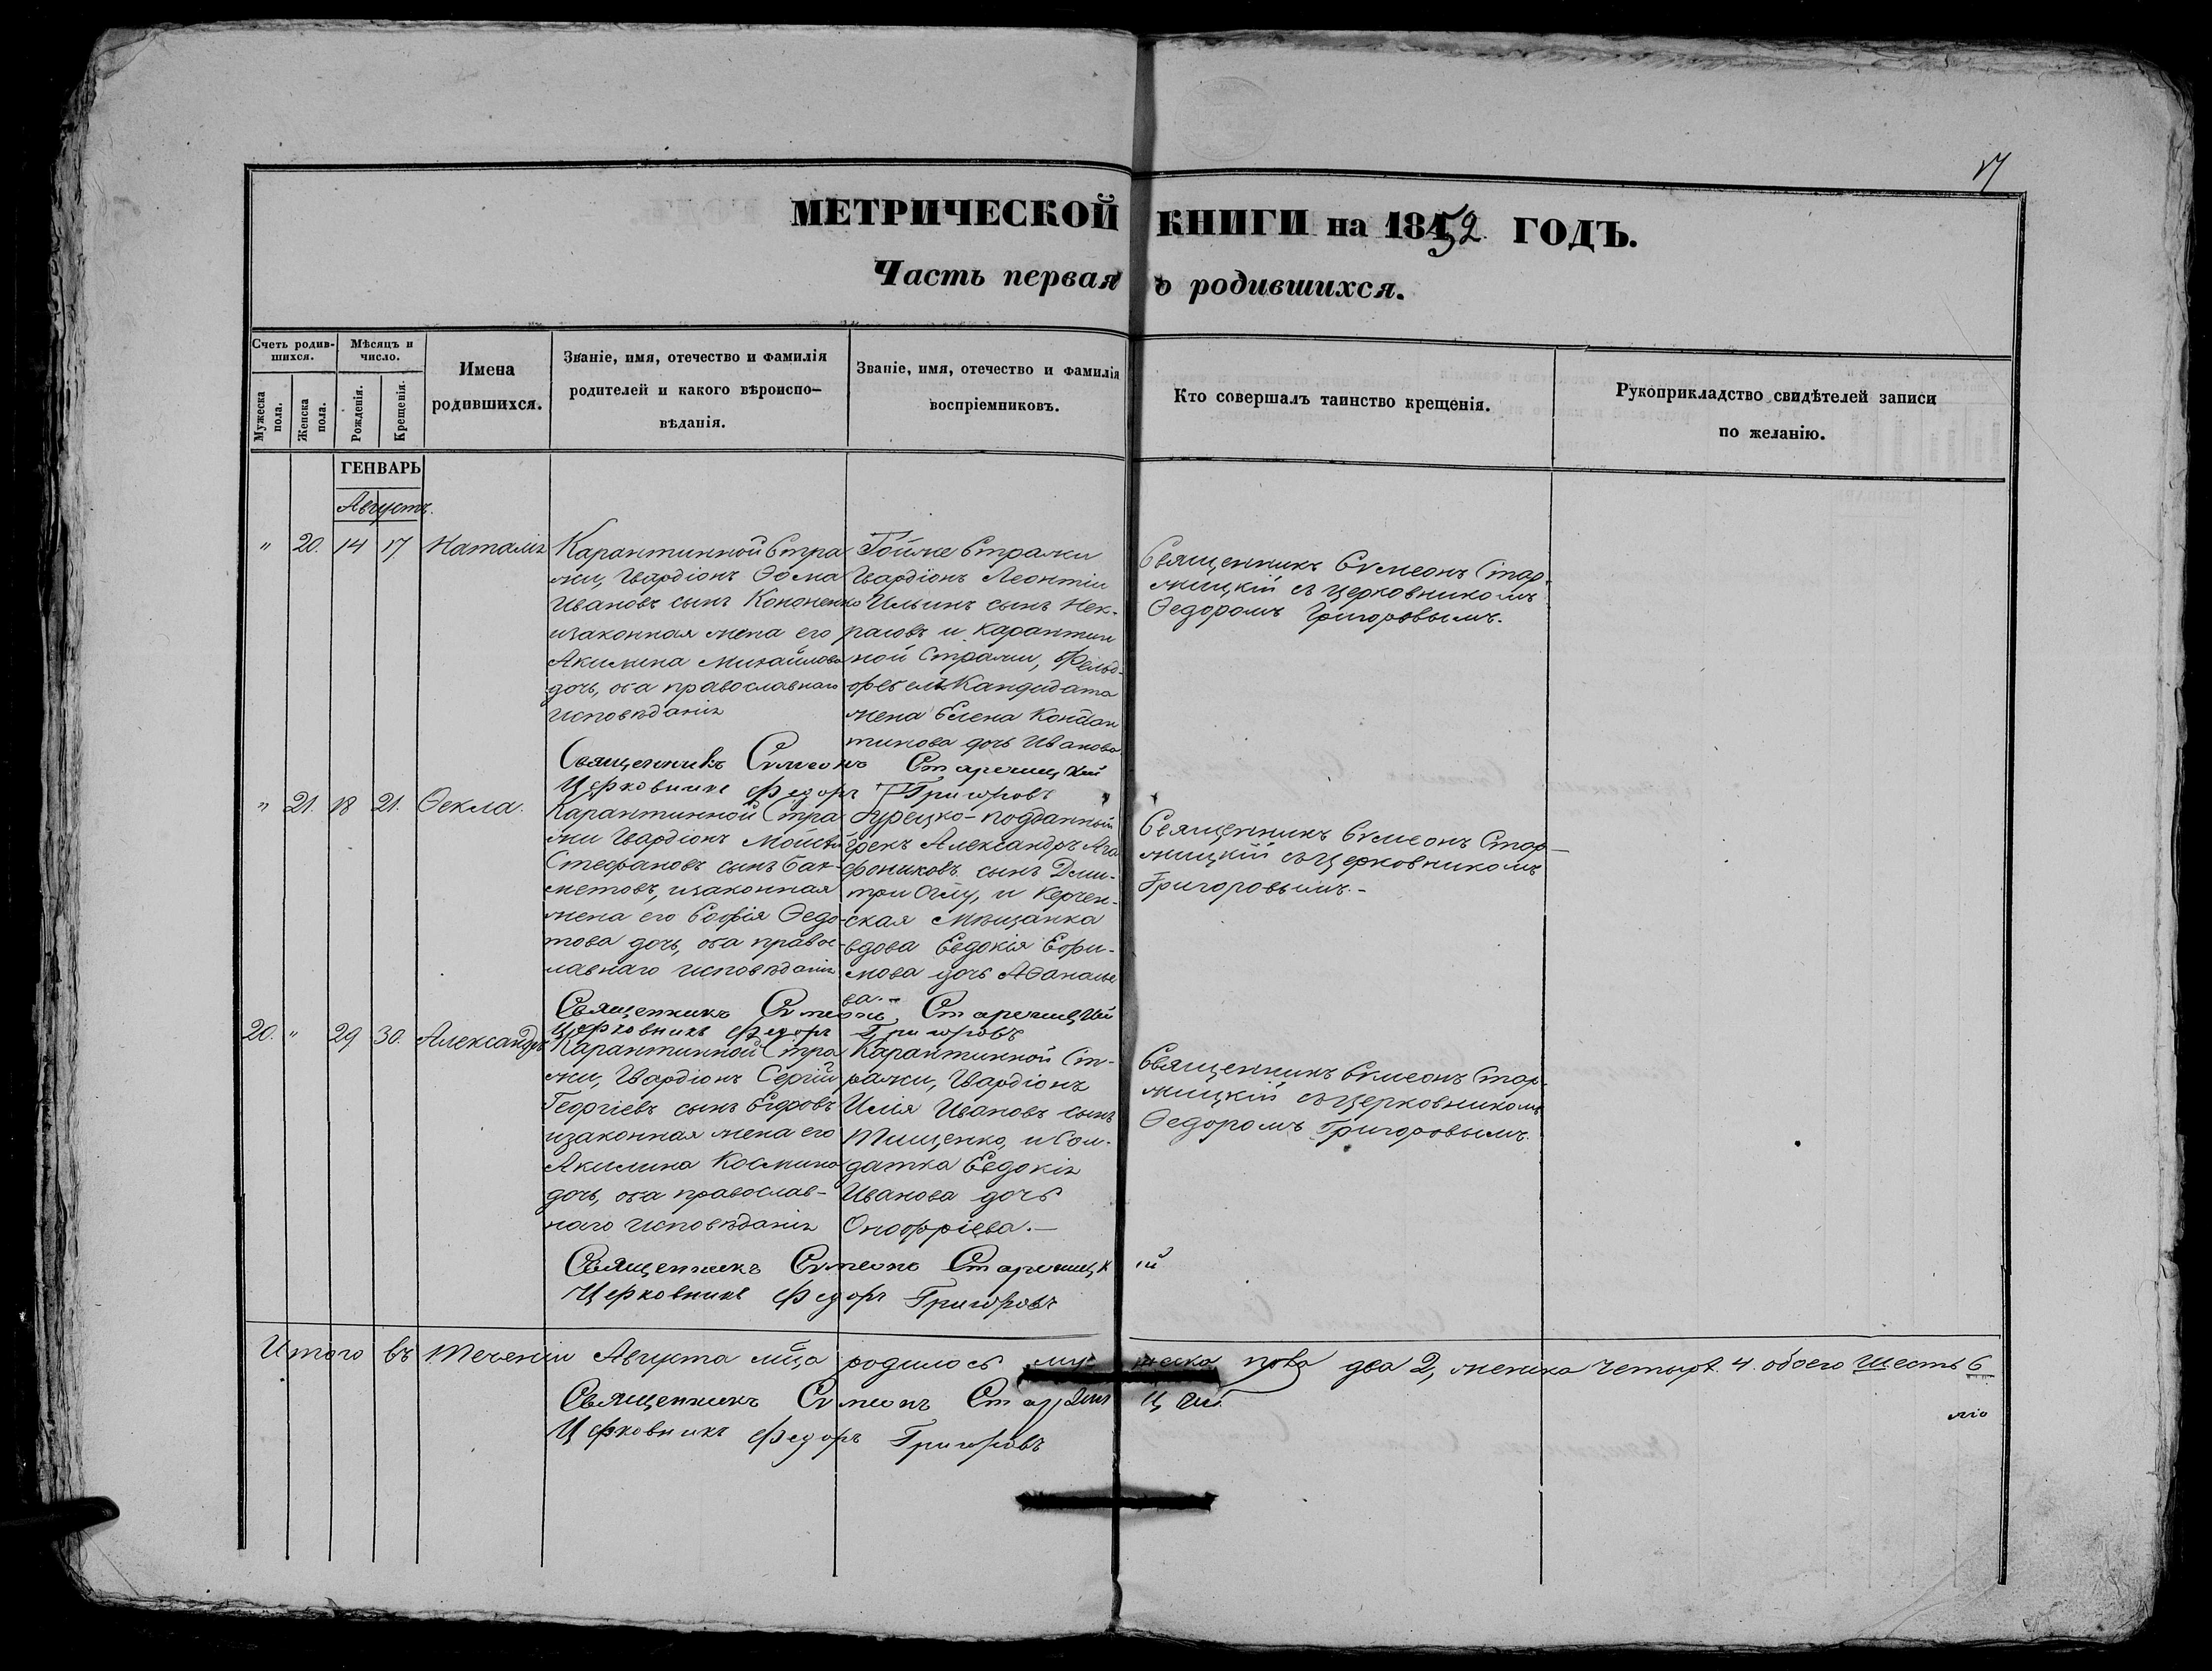 17
МЕТРИЧЕСКОЙ КНИГИ на 1852 ГОДЪ.
Часть первая о родившихся.
Счетъ родив-
шихся.
Мужеска пола.
Женска пола.
Мѣсяцъ и
число.
Рожденія.
Крещенія.
Имена
родившихся.
Званіе, имя, отечество и фамилія
родителей и какого вѣроиспо-
вѣданія.
Званіе, имя, отечество и фамилія
воспріемниковъ.
Кто совершалъ таинство крещенія.
Рукоприкладство свидѣтелей записи
по желанію.
ГЕНВАРЬ
Августъ.
" 20. 14 17 Наталія
Карантинной Стра
жи, Гвардіонъ Ѳома
Ивановъ сынъ Кононенко
изаконная жена его
Акилина Михайлова
дочь, оба православнаго
исповѣданія
Тойже Стражи
Гвардіонъ Леонтій
Ильинъ сынъ Нек-
расовъ и карантин
ной Стражи, Фельд-
Кандидата
жена Елена Констан
тинова дочь Иванова
Священникъ Сѵмеонъ Стар-
жицкій съ церковникомъ
Ѳедоромъ Григоровымъ.
Священникъ Сѵмеонъ Старжицкій
Церковникъ Федоръ Григоровъ
" 21. 18 21. Ѳекла.
Карантинной Стра
жи Гвардіонъ Моисей
Стефановъ сынъ Бах-
метовъ, изаконная
жена его Софія Ѳедо-
това дочь, оба правос-
лавнаго исповѣданія
Турецко-подданный
грекъ Александръ Ага
фониковъ сынъ Дми-
три Оглу, и Керчен-
ская Мѣщанка
вдова Евдокія Ефи-
мова дочь Аѳанасье
ва.-
Священникъ Сѵмеонъ Стар-
жицкій съ Церковникомъ
Григоровымъ.-
Священникъ Сѵмеонъ Старжицкій
Церковникъ Федоръ Григоровъ
20. " 29 30. Александръ
Карантинной Стра
жи, Гвардіонъ Сергій
Георгіевъ сынъ Егоровъ
изаконная жена его
Акилина Космина
дочь, оба православ-
наго исповѣданія
Карантинной Ст-
ражи, Гвардіонъ
Илія Ивановъ сынъ
Тищенко, и Сол-
датка Евдокія
Иванова дочь
Онофріева.-
Священникъ Сѵмеонъ Стар-
жицкій съ Церковникомъ
Ѳедоромъ Григоровымъ.
Священникъ Сѵмеонъ Старжицкій
Церковникъ Федоръ Григоровъ
Итого въ теченіи Августа мца родилось мужеска пола два 2, женска четыре 4. обоего шесть 6
Священникъ Сѵмеонъ Старжицкій
Церковникъ Федоръ Григоровъ